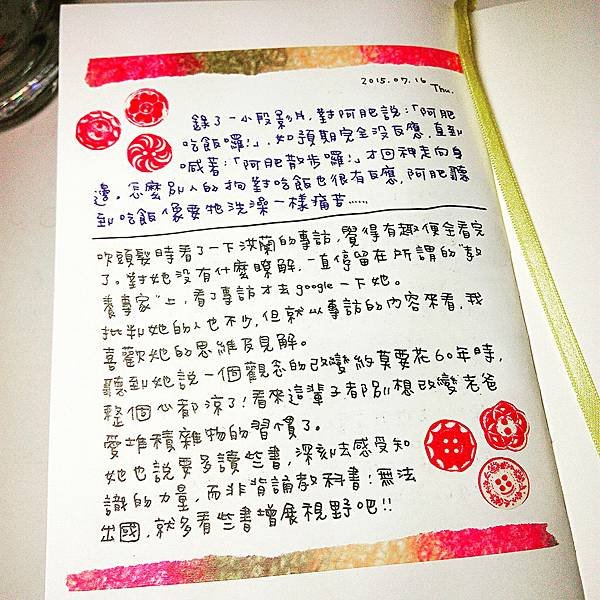 2015.07.16 Thu.
錄了一小段影片，對阿肥說：「阿肥
吃飯囉！」，如預期完全沒反應，直到
喊著：「阿肥散步囉！」才回神走向身
邊。怎麼別人的狗對吃飯也很有反應，阿肥聽
到吃飯像要牠洗澡一樣痛苦……
吹頭髮時看了一下洪蘭的專訪，覺得有趣便全看完
了。對她沒有什麼瞭解，一直停留在所謂的"教
養專家"上，看了專訪才去google一下她。
批判她的人也不少，但就以專訪的內容來看，我
喜歡她的思維及見解。
聽到她說一個觀念的改變約莫要花60年時，
整個心都涼了！看來這輩子都別想改變老爸
愛堆積雜物的習慣了。
她也說要多讀些書，深刻去感受知
識的力量，而非背誦教科書；無法
出國，就多看些書增展視野吧!!